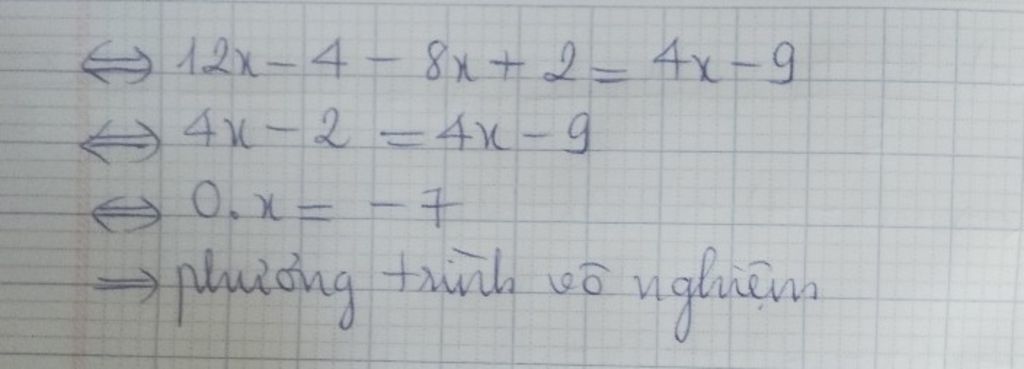 ⇔ 12x - 4 - 8x + 2 = 4x - 9
⇔ 4x - 2 = 4x - 9
⇔ 0.x = - 7
⇒ phương trình vô nghiệm